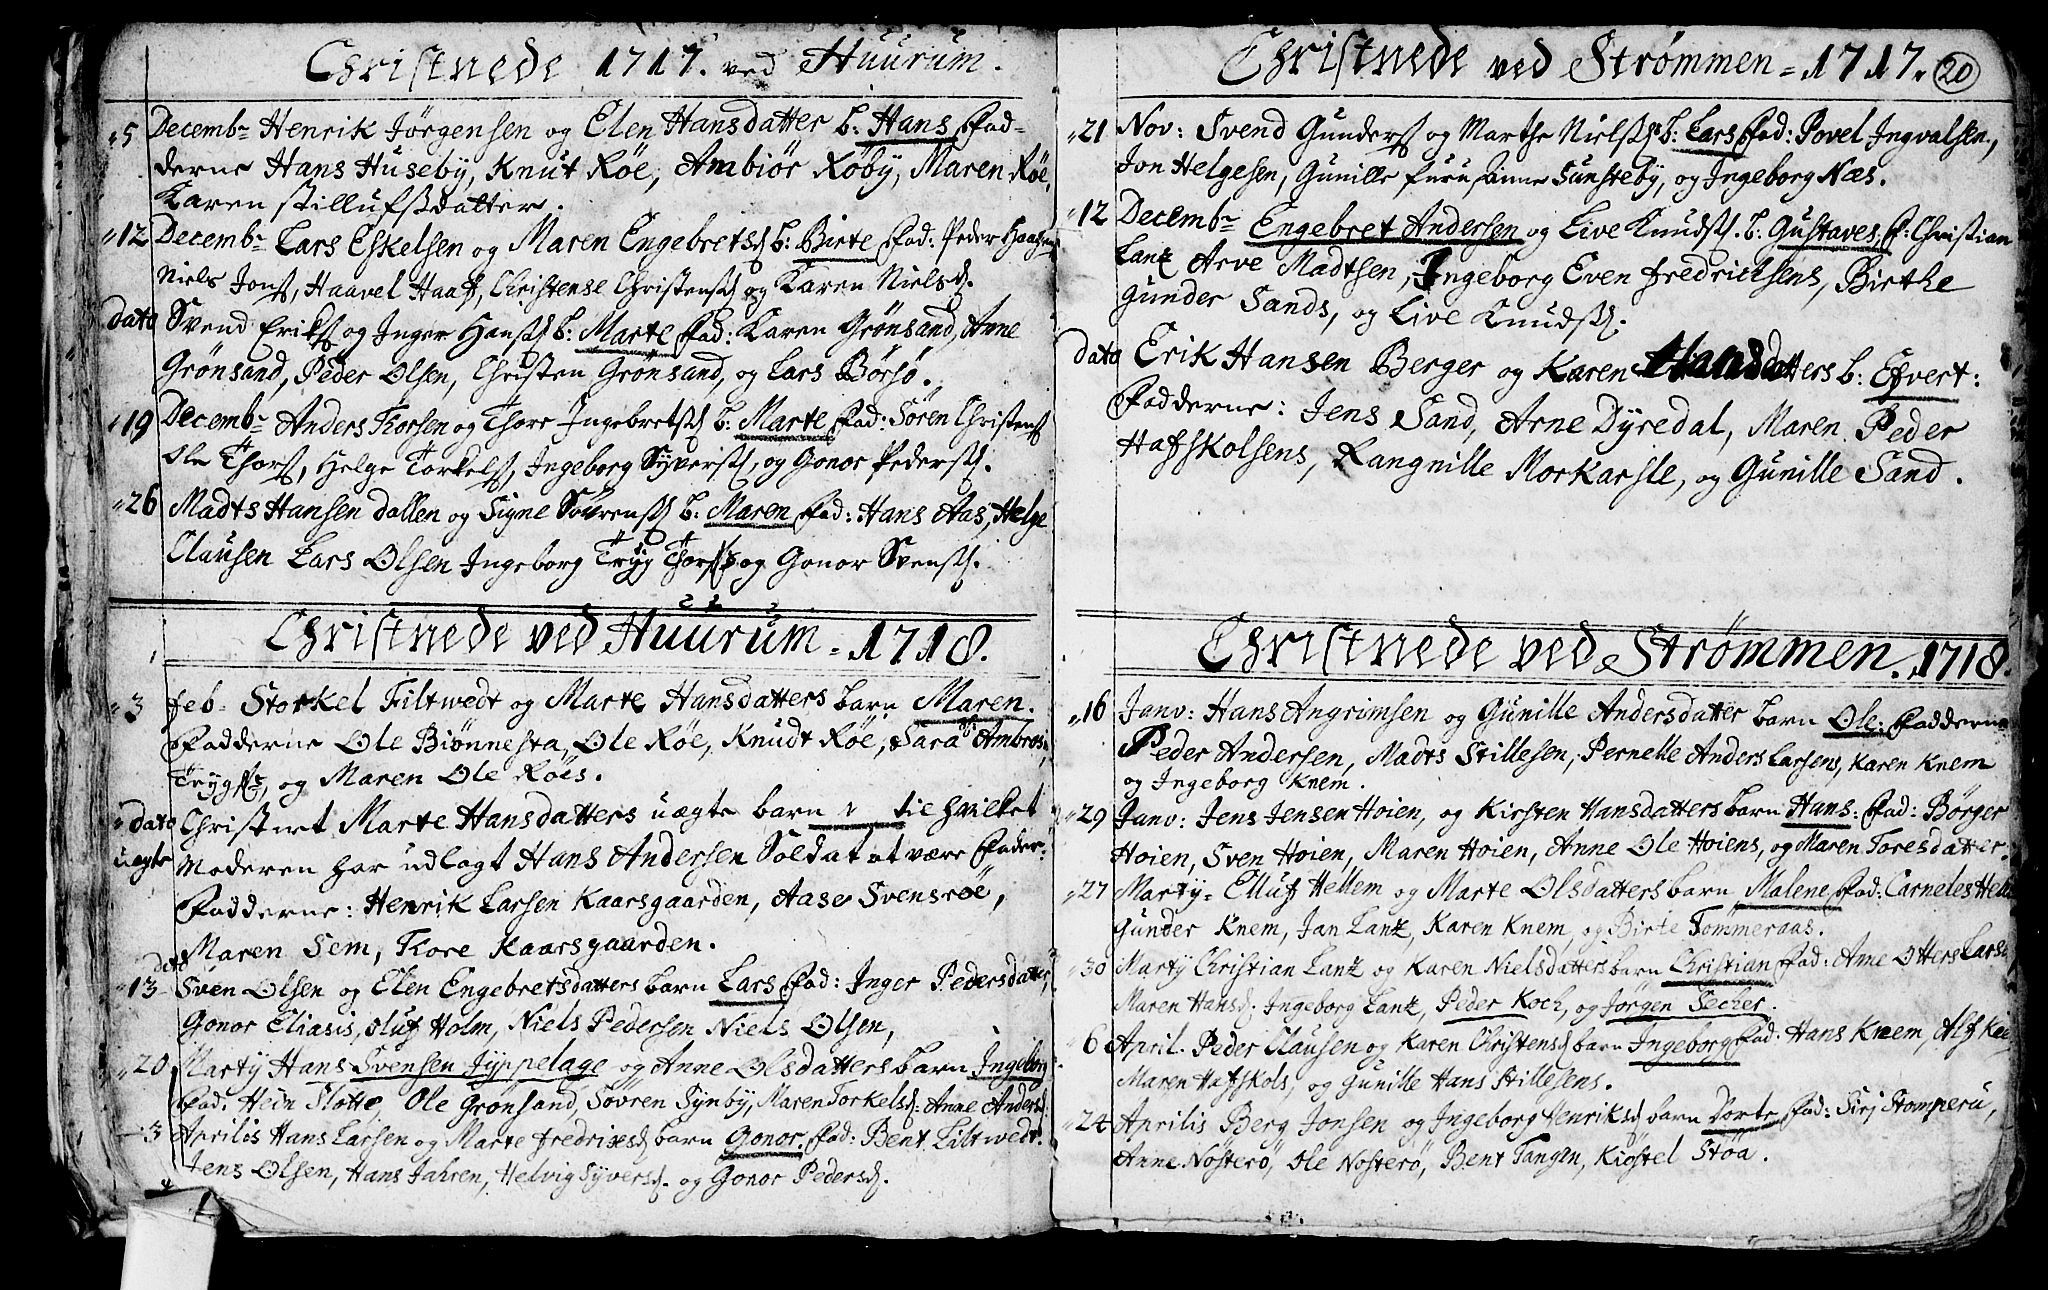 Christnede 1717. ved Huurum.
"5 Decemb= Henrik Jörgensen og Elen Hansdatter b: Hans Fad=
derne Hans Huseby, Knut Röe, Ambiör Röby, Maren Röe,
Karen Stillufsdatter.
"12 Decemb= Lars Eskelsen og Maren Engebretsd b: Birte Fad: Peder
Niels Jons, Haavel Haaf, Christense Christensd og Karen Nielsd.
dato Svend Eriks og Inger Hansd b: Marte Fad: Karen Grönsand, Anne
Grönsand, Peder Olsen, Christen Grönsand, og Lars Börsö.
"19 Decemb= Anders Thorsen og Thore Ingebretsd b: Marte Fad: Sören Christens
Ole Thors, Helge Torkels, Ingeborg Syversd, og Gonor Pedersd.
"26 Madts Hansen Dallen og Signe Sörensd b: Maren Fad: Hans Aas, Helge
Clausen Lars Olsen Ingeborg Tryg Thors og Gonor Svensd.
Christnede ved Huurum = 1718.
"3 Feb= Storkel Filtwedt og Marte Hansdatters barn Maren.
Fadderne Ole Biönnesta, Ole Röe, Knudt Röe, Sara Ambros,
og Maren Ole Röes.
"dato Christnet Marte Hansdatters uægte barn til hvilket
uægte Moderen har udlagt Hans Andersen Soldat at være Fader:
Fadderne: Henrik Larsen Kaarsgaarden, Aase Svensröe,
Maren Sem, Tkore Kaarsgaarden.
"13 dato Sven Olsen og Elen Engebretsdatters barn Lars Fad: Inger Pedersdatter,
Gonor Eliasis, Oluf Holm, Niels Pedersen Niels Olsen,
"20 Marty Hans Svensen Jyppelage og Anne Olsdatters barn Ingeborg
Fad: Hein Slotte, Ole Grönsand, Sövren Synby, Maren Torkelsd: Anne Andersd
3 Aprilis Hans Larsen og Marte Fredrixsd barn Gonor. Fad: Bent Filtwedt.
Jens Olsen, Hans Jahren, Helvig Syversd. og Gonor Pedersd.
Christnede ved Strømmen = 1717. 20
"21 Nov: Svend Gunders og Marthe Nielsd b: Lars Fad: Povel Ingvalsen,
Jon Helgesen, Gunille Furu, Anne Sunsteby, og Ingeborg Næs.
"12 Decemb= Engebret Andersen og Live Knudsd b: Gustaves F: Christian
Lantz Arve Madtsen, Ingeborg Even Fredrichsens, Birthe
Gunder Sands, og Live Knudsd.
dato Erik Hansen Berger og Karen Hansdatters b: Efvert:
Fadderne: Jens Sand, Arne Dyredal, Maren Peder
Hafskolsens, Rangnille Morkarsle, og Gunille Sand.
Christnede ved Strømmen. 1718.
"16 Janv: Hans Angrimsen og Gunille Andersdatter barn Ole: Fadderne
Peder Andersen, Madts Stillesen, Pernelle Anders Larsens, Karen Knem
og Ingeborg Knem.
"29 Janv: Jens Jensen Hoien, og Kirsten Hansdatters barn Hans: Fad: Börger
Hoien, Sven Hoien, Maren Hoien, Anne Ole Hoiens, og Maren Toresdatter.
"27 Marty= Elluf Hellem og Marte Olsdatters barn Malene Fad: Carneles
Gunder Knem, Jan Lantz, Karen Knem, og Birte Tommeraas.
"30 Marty Christian Lantz og Karen Nielsdatters barn Christian Fad: Anne Otters Larsd,
Maren Hansd: Ingeborg Lantz, Peder Koch, og Jörgen Secher.
"6 April. Peder Clausen og Karen Christensd barn Ingeborg Fad: Hans Knem, Alf
Maren Hafskols, og Gunille Hans Stillesens.
"24 Aprilis Berg Jonsen og Ingeborg Henriksd barn Dorte Fad: Sirj Stomperu,
Anne Nösterö, Ole Nosterö, Bent Tangen, Kiöstel Stöa.